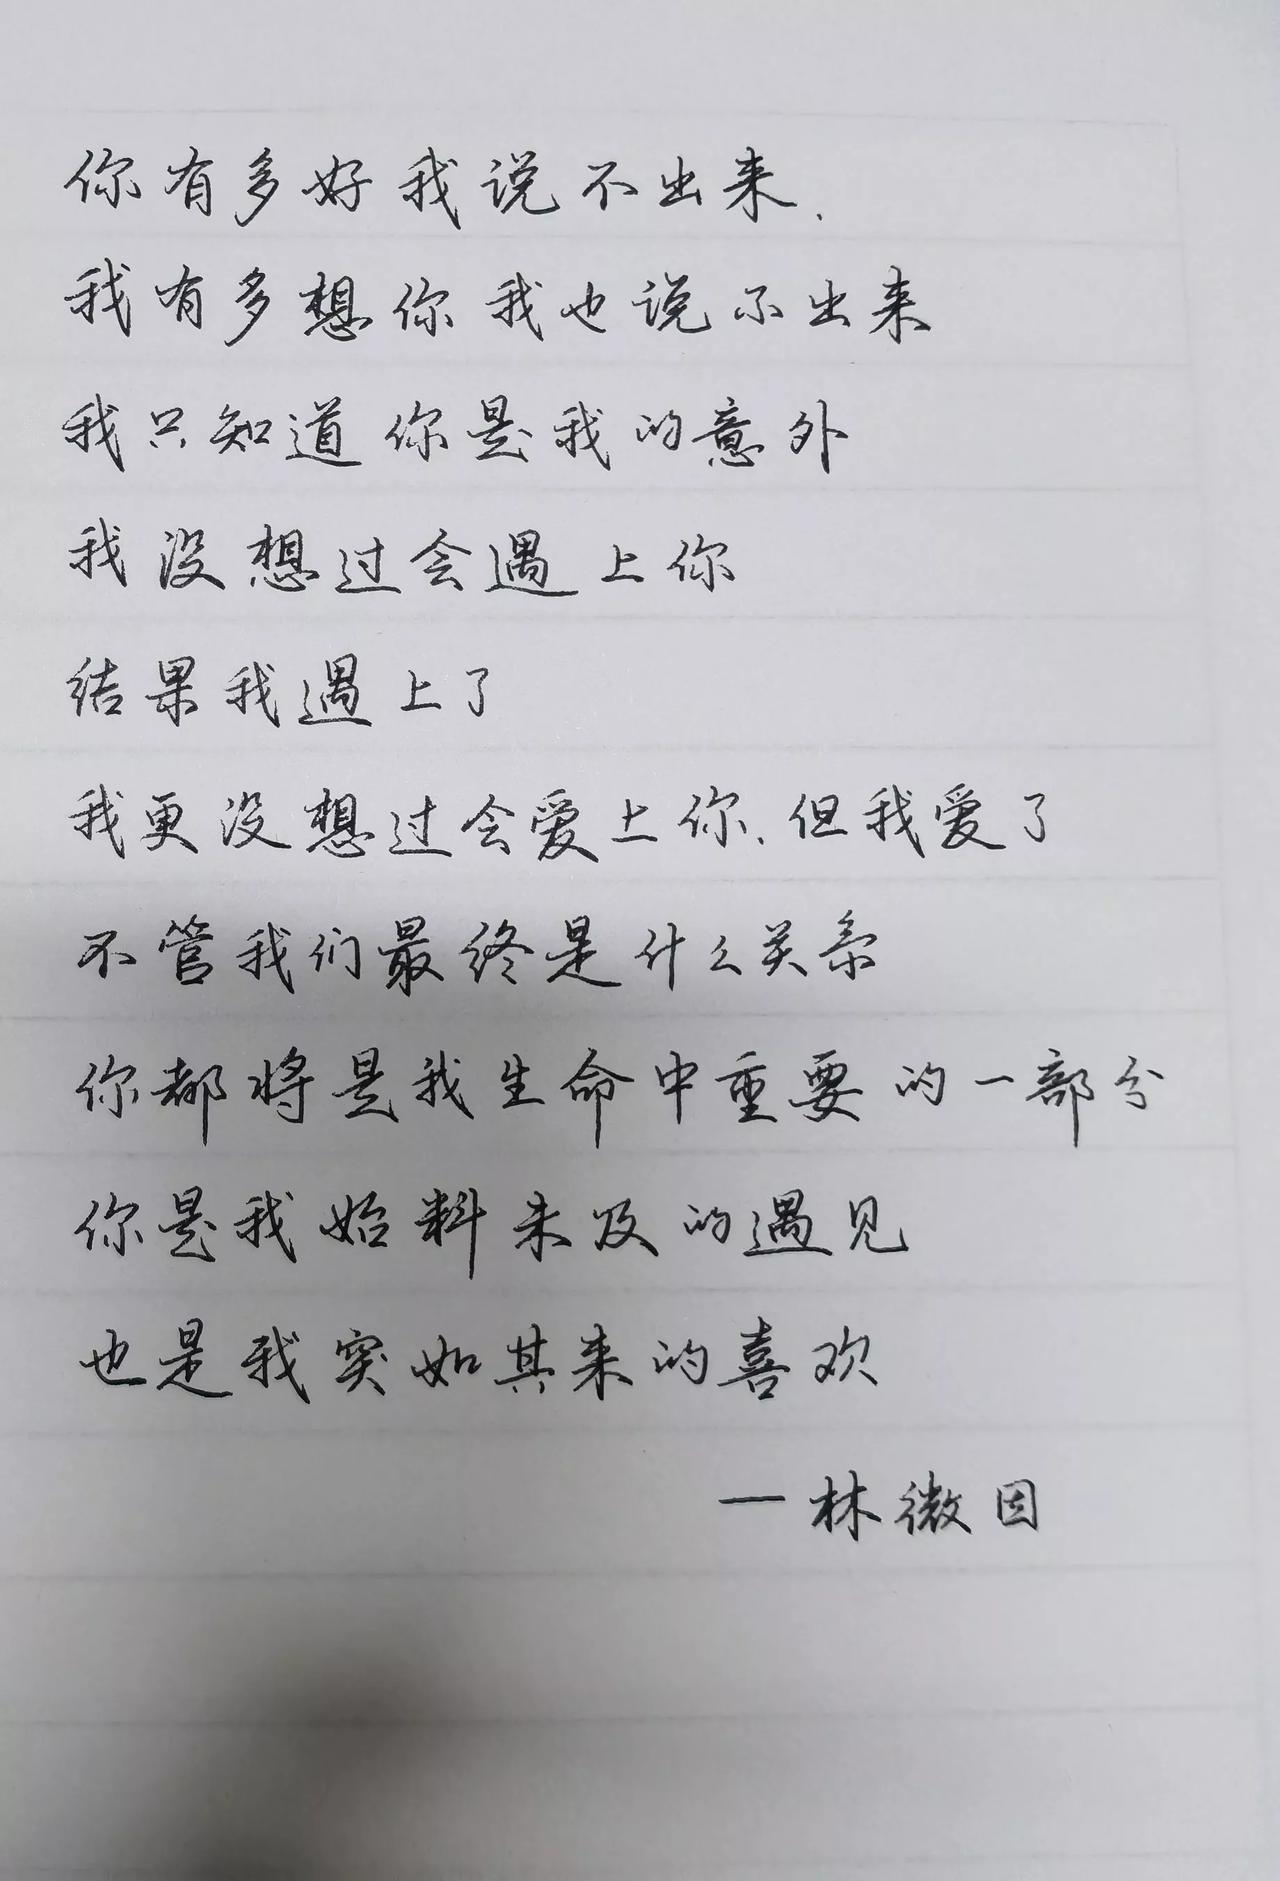 你有多好我说不出来、
我有多想你我也说不出来
我只知道你是我的意外
我没想过会遇上你
结果我遇上了
我更没想过会爱上你、但我爱了
不管我们最终是什么关系
你都将是我生命中重要的一部分
你是我始料未及的遇见
也是我突如其来的喜欢
—林微因